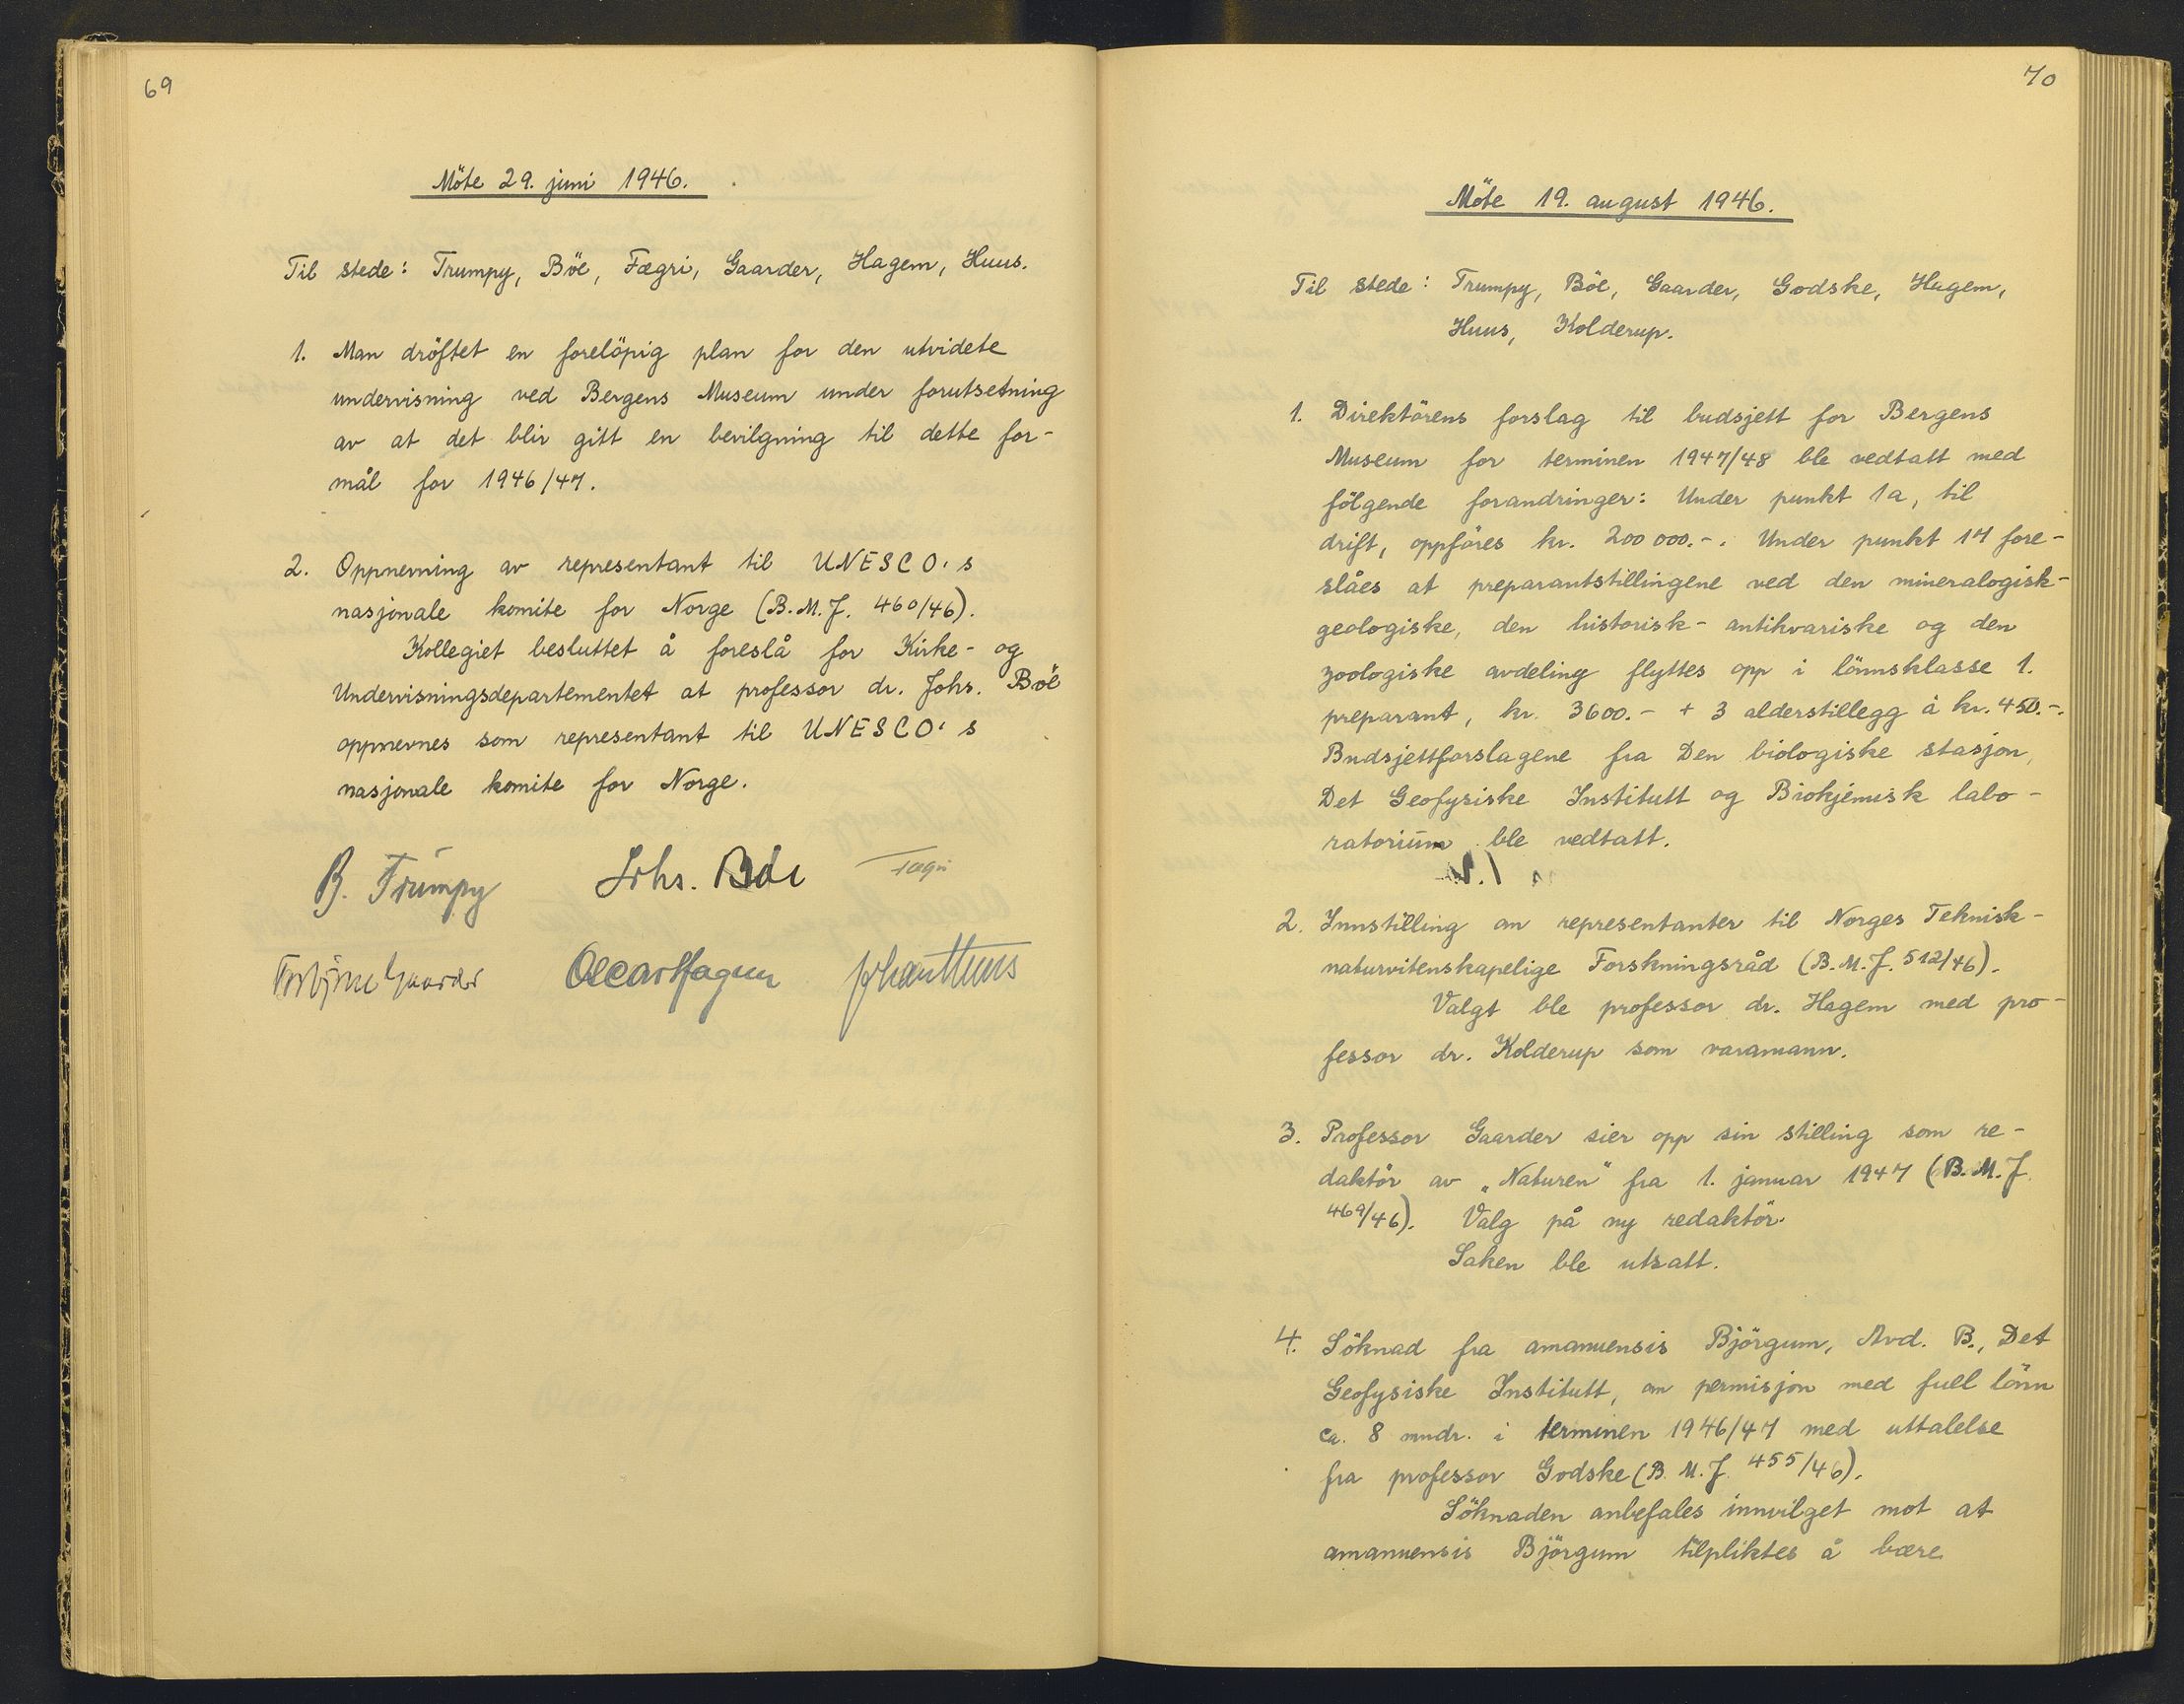 69
Möte 29. juni 1946.
Til stede: Trumpy, Böe, Fægri, Gaarder, Hagem, Huus.
1. Man dröftet en forelöpig plan for den utvidete
undervisning ved Bergens Museum under forutsetning
av at det blir gitt en bevilgning til dette for-
mål for 1946/47.
2. Oppnevning av representant til UNESCO's
nasjonale komite for Norge (B.M.J. 460/46).
Kollegiet besluttet å foreslå for Kirke- og
Undervisningsdepartementet at professor dr. Johs. Böe
oppnevnes som representant til UNESCO's
nasjonale komite for Norge.
B. Trumpy Johs. Böe Fægri
Torbjörn Gaarder Oscar Hagem Johan Huus
70
Möte 19. august 1946.
Til stede: Trumpy, Böe, Gaarder, Godske, Hagem,
Huus, Kolderup.
1. Direktörens forslag til budsjett for Bergens
Museum for terminen 1947/48 ble vedtatt med
fölgende forandringer: Under punkt 1a, til
drift, oppföres kr. 200 000.-. Under punkt 17 fore-
slåes at preparantstillingene ved den mineralogisk-
geologiske, den historisk-antikvariske og den
zoologiske avdeling flyttes opp i lönnsklasse 1.
preparant, kr. 3600.- + 3 alderstillegg à kr. 450.-.
Budsjettforslagene fra Den biologiske stasjon,
Det Geofysiske Institutt og Biokjemisk labo-
ratorium ble vedtatt.
2. Innstilling om representanter til Norges Teknisk-
naturvitenskapelige Forskningsråd (B.M.J. 512/46).
Valgt ble professor dr. Hagem med pro-
fessor dr. Kolderup som varamann.
3. Professor Gaarder sier opp sin stilling som re-
daktör av „Naturen" fra 1. januar 1947 (B.M.J.
469/46). Valg på ny redaktör.
Saken ble utsatt.
4. Söknad fra amanuensis Björgum, Avd. B., Det
Geofysiske Institutt, om permisjon med full lönn
ca. 8 mndr. i terminen 1946/47 med uttalelse
fra professor Godske (B.M.J. 455/46).
Söknaden anbefales innvilget mot at
amanuensis Björgum tilpliktes å bære